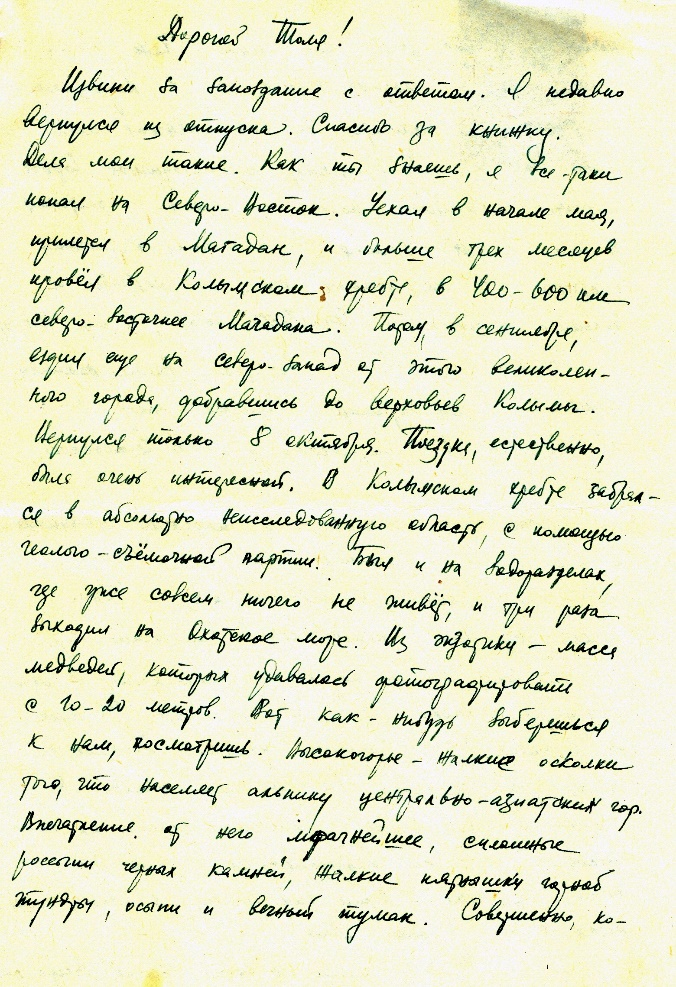 Дорогой Толя!
Извини за запоздание с ответом. Я недавно
вернулся из отпуска. Спасибо за книжку.
Дела мои такие. Как ты знаешь, я все-таки
попал на Северо-Восток. Уехал в начале мая,
прилетел в Магадан, и больше трех месяцев
провёл в Колымском хребте, в 400-600 км
северо-восточнее Магадана. Потом, в сентябре,
ездил еще на северо-запад от этого великолеп-
ного города, добравшись до верховьев Колымы.
Вернулся только 8 октября. Поездка, естественно,
была очень интересной. В Колымском хребте забрал-
ся в абсолютно неисследованную область, с помощью
геолого-съёмочной партии. Был и на водоразделах,
где уже совсем ничего не живёт, и три раза
выходил на Охотское море. Из экзотики – масса
медведей, которых удавалось фотографировать
с 10-20 метров. Вот как-нибудь выберешься
к нам, посмотришь. Высокогорье – жалкие осколки
того, что населяет альпику центрально-азиатских гор.
Впечатление от него мрачнейшее, сплошные
россыпи черных камней, жалкие клочки горной
тундры, осыпи и вечный туман. Совершенно, ко-